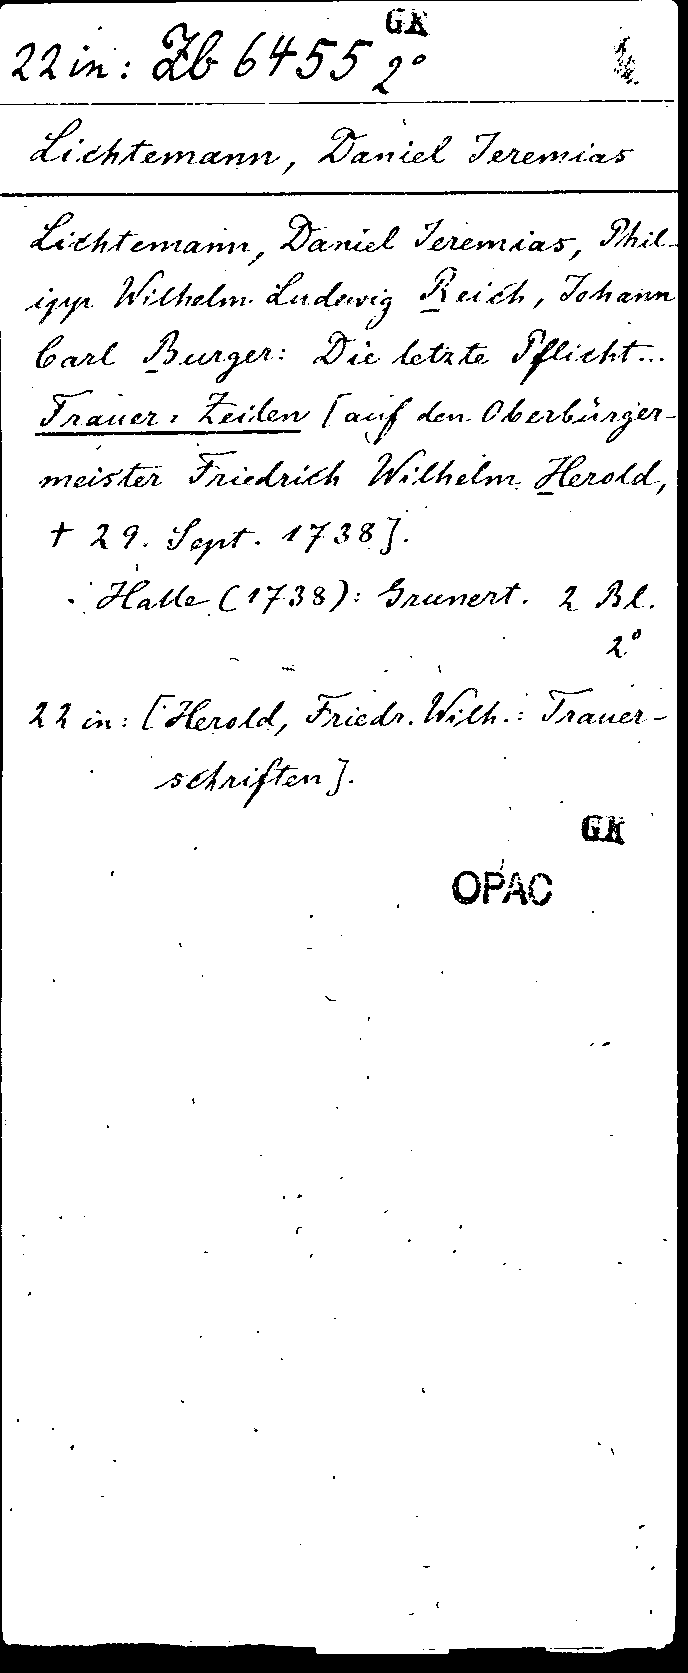 GK
22 in: Zb 6455 2°
Lichtemann, Daniel Jeremias
Lichtemann, Daniel Jeremias, Phil-
ipp Wilhelm Ludewig Reich, Johann
Carl Burger: Die letzte Pflicht...
Trauer=Zeilen [auf den Oberbürger-
meister Friedrich Wilhelm Herold,
† 29. Sept. 1738].
Halle (1738): Grunert. 2 Bl.
2°
22 in: [Herold, Friedr. Wilh.: Trauer-
schriften].
GK
OPAC